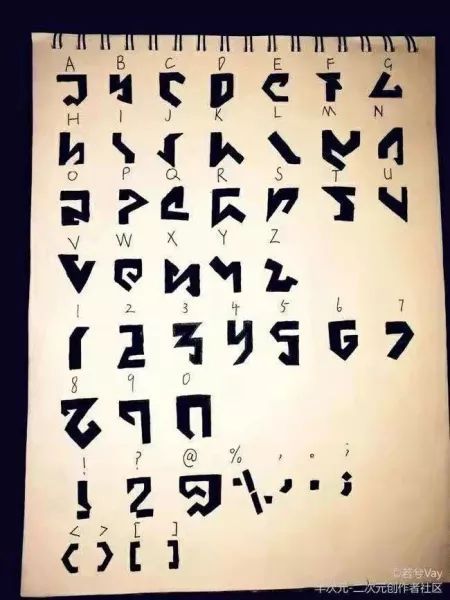 A B C D E F G
H I J K L M N
O P Q R S T U
V W X Y Z
1 2 3 4 5 6 7
8 9 0
! ? @ % , 。 ;
< > [ ]
©若兮Vay
半次元-二次元创作者社区